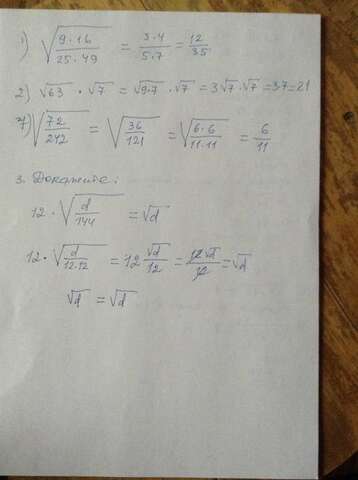 1) √(9·16 / 25·49) = 3·4 / 5·7 = 12 / 35
2) √63 · √7 = √9·7 · √7 = 3√7·√7 = 3·7=21
4) √(72 / 242) = √(36 / 121) = √(6·6 / 11·11) = 6 / 11
3. Докажите:
12 · √(d / 144) = √d
12 · √(d / 12·12) = 12 √d / 12 = 12√d / 12 = √d
√d = √d